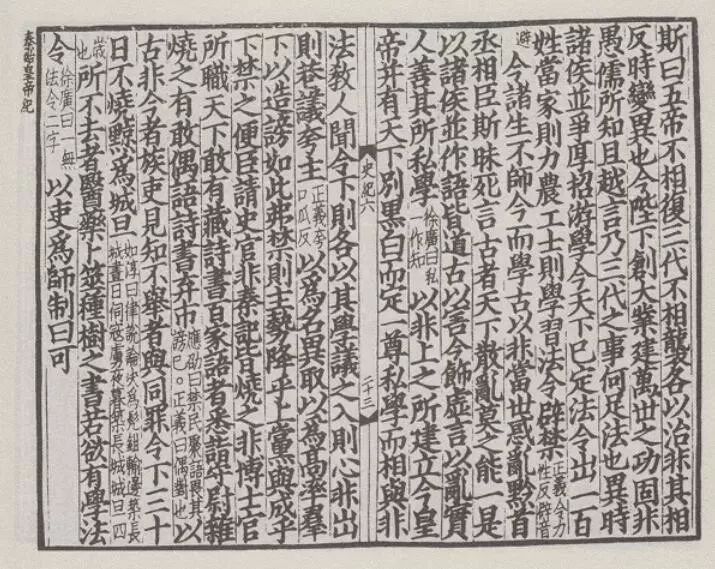 斯曰五帝不相復三代不相襲各以治非其相
反時變異也今陛下創大業建萬世之功固非
愚儒所知且越言乃三代之事何足法也異時
諸侯並爭厚招游學今天下已定法令出一百
姓當家則力農工士則學習法令辟禁正義令力性反辟音
避今諸生不師今而學古以非當世惑亂黔首
丞相臣斯昧死言古者天下散亂莫之能一是
以諸侯並作語皆道古以害今飾虛言以亂實
人善其所私學徐廣曰私一作知以非上之所建立今皇
帝并有天下別黑白而定一尊私學而相與非
史紀六
二十三
法教人聞令下則各以其學議之入則心非出
則巷議夸主正義夸口瓜反以爲名異取以爲高率羣
下以造謗如此弗禁則主勢降乎上黨與成乎
下禁之便臣請史官非秦記皆燒之非博士官
所職天下敢有藏詩書百家語者悉詣守尉雜
燒之有敢偶語詩書棄市應劭曰禁民聚語畏其謗己。正義曰偶對也以
古非今者族吏見知不舉者與同罪令下三十
日不燒黥爲城旦如淳曰律說論決爲髡鉗輸邊築長城晝日伺寇虜夜暮築長城城旦四
歲也所不去者醫藥卜筮種樹之書若欲有學法
令徐廣曰一無法令二字以吏爲師制曰可
秦始皇帝紀